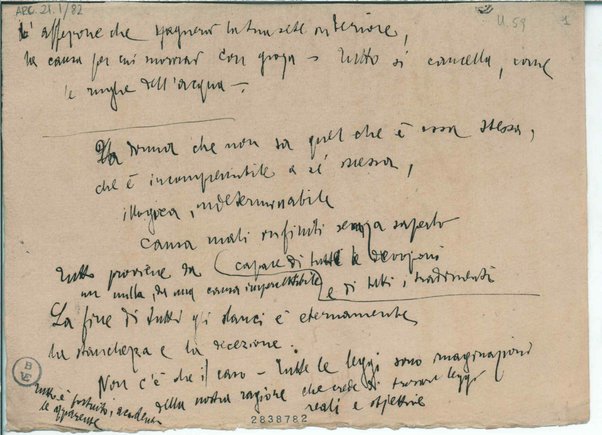 ARC. 21. I/82
U. 59
1
L'affezione che spegnerà la tua sete interiore,
la causa per cui morrai con gioia – Tutto si cancella, come
le rughe dell'acqua –.
La donna che non sa quel che è essa stessa,
che è incomprensibile a sé stessa,
illogica, indeterminabile
causa mali infiniti senza saperlo
capace di tutte le devozioni
e di tutti i tradimenti
Tutto proviene da
un nulla, da una causa impercettibile
La fine di tutti gli slanci è eternamente
la stanchezza e la decezione.
Non c'è che il caso – Tutte le leggi sono immaginazioni
della nostra ragione che crede di trovare leggi
reali e obiettive
tutto è fortuito, accidentale
apparente
2838782